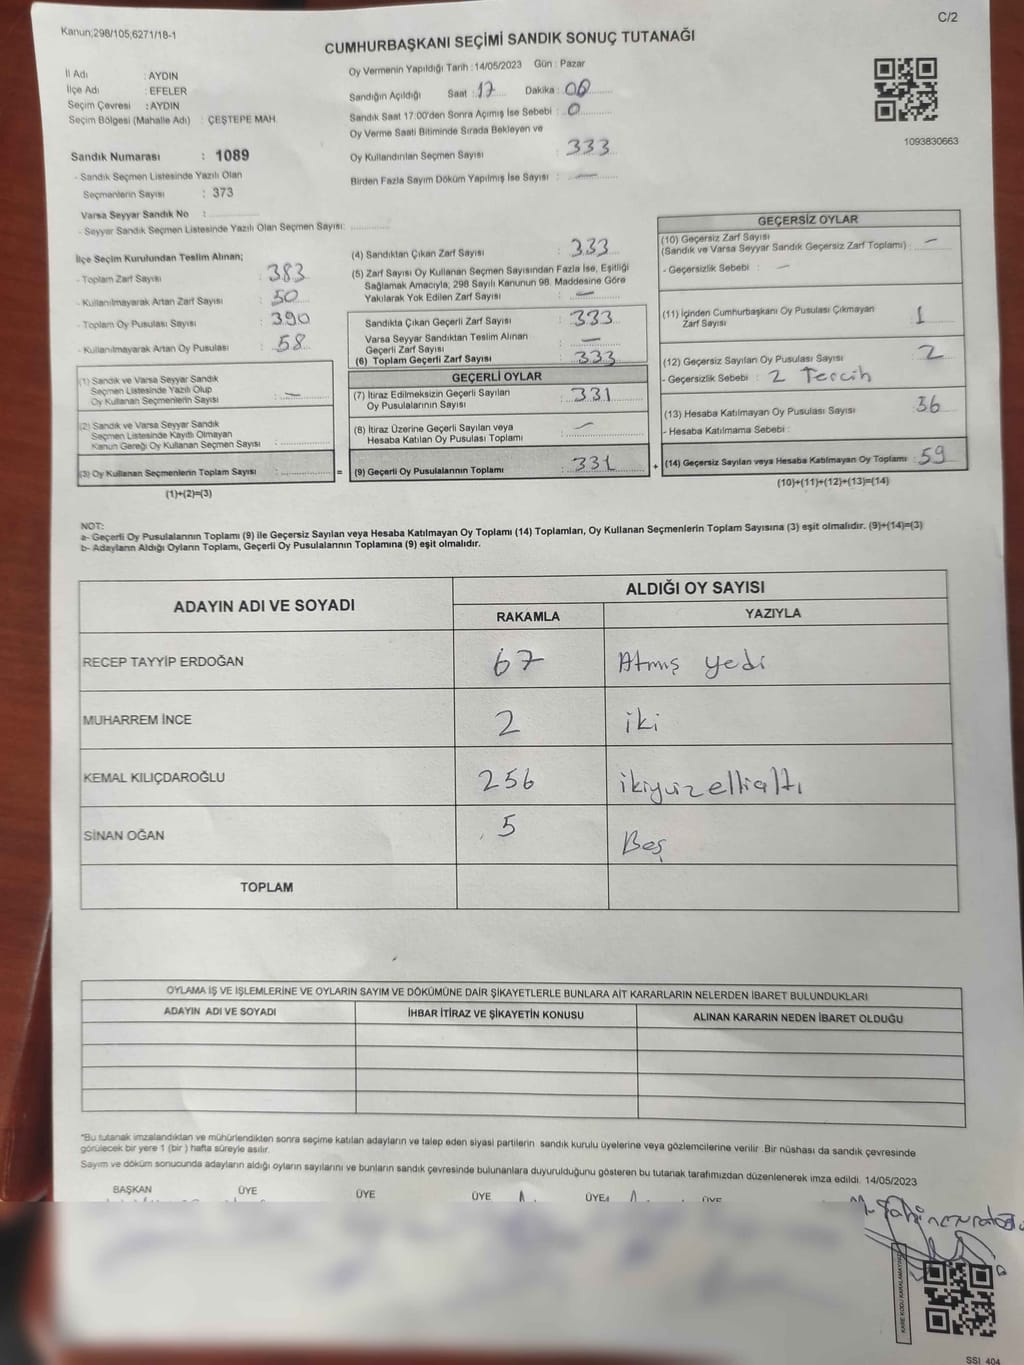 Kanun;298/105,6271/18-1
C/2
CUMHURBAŞKANI SEÇİMİ SANDIK SONUÇ TUTANAĞI
İl Adı : AYDIN
İlçe Adı : EFELER
Seçim Çevresi : AYDIN
Seçim Bölgesi (Mahalle Adı) : ÇEŞTEPE MAH.
Sandık Numarası : 1089
- Sandık Seçmen Listesinde Yazılı Olan
Seçmenlerin Sayısı : 373
Varsa Seyyar Sandık No :
- Seyyar Sandık Seçmen Listesinde Yazılı Olan Seçmen Sayısı:
Oy Vermenin Yapıldığı Tarih : 14/05/2023 Gün : Pazar
Sandığın Açıldığı Saat : 17 Dakika : 00
Sandık Saat 17:00'den Sonra Açımış İse Sebebi : 0
Oy Verme Saati Bitiminde Sırada Bekleyen ve
Oy Kullandırılan Seçmen Sayısı : 333
Birden Fazla Sayım Döküm Yapılmış İse Sayısı : —
1093830663
İlçe Seçim Kurulundan Teslim Alınan;
- Toplam Zarf Sayısı : 383
- Kullanılmayarak Artan Zarf Sayısı : 50
- Toplam Oy Pusulası Sayısı : 390
- Kullanılmayarak Artan Oy Pusulası : 58
(1) Sandık ve Varsa Seyyar Sandık
Seçmen Listesinde Yazılı Olup
Oy Kullanan Seçmenlerin Sayısı : —
(2) Sandık ve Varsa Seyyar Sandık
Seçmen Listesinde Kayıtlı Olmayan
Kanun Gereği Oy Kullanan Seçmen Sayısı :
(3) Oy Kullanan Seçmenlerin Toplam Sayısı :
(1)+(2)=(3)
=
(4) Sandıktan Çıkan Zarf Sayısı : 333
(5) Zarf Sayısı Oy Kullanan Seçmen Sayısından Fazla İse, Eşitliği
Sağlamak Amacıyla; 298 Sayılı Kanunun 98. Maddesine Göre
Yakılarak Yok Edilen Zarf Sayısı : —
Sandıkta Çıkan Geçerli Zarf Sayısı : 333
Varsa Seyyar Sandıktan Teslim Alınan
Geçerli Zarf Sayısı : —
(6) Toplam Geçerli Zarf Sayısı : 333
GEÇERLİ OYLAR
(7) İtiraz Edilmeksizin Geçerli Sayılan
Oy Pusulalarının Sayısı : 331
(8) İtiraz Üzerine Geçerli Sayılan veya
Hesaba Katılan Oy Pusulası Toplamı : —
(9) Geçerli Oy Pusulalarının Toplamı : 331
+
GEÇERSİZ OYLAR
(10) Geçersiz Zarf Sayısı
(Sandık ve Varsa Seyyar Sandık Geçersiz Zarf Toplamı) : —
- Geçersizlik Sebebi : —
(11) İçinden Cumhurbaşkanı Oy Pusulası Çıkmayan
Zarf Sayısı : 1
(12) Geçersiz Sayılan Oy Pusulası Sayısı : 2
- Geçersizlik Sebebi : 2 Tercih
(13) Hesaba Katılmayan Oy Pusulası Sayısı : 36
- Hesaba Katılmama Sebebi :
(14) Geçersiz Sayılan veya Hesaba Katılmayan Oy Toplamı : 59
(10)+(11)+(12)+(13)=(14)
NOT:
a- Geçerli Oy Pusulalarının Toplamı (9) ile Geçersiz Sayılan veya Hesaba Katılmayan Oy Toplamı (14) Toplamları, Oy Kullanan Seçmenlerin Toplam Sayısına (3) eşit olmalıdır. (9)+(14)=(3)
b- Adayların Aldığı Oyların Toplamı, Geçerli Oy Pusulalarının Toplamına (9) eşit olmalıdır.
ADAYIN ADI VE SOYADI
ALDIĞI OY SAYISI
RAKAMLA YAZIYLA
RECEP TAYYİP ERDOĞAN 67 Atmış yedi
MUHARREM İNCE 2 iki
KEMAL KILIÇDAROĞLU 256 ikiyüzellialtı
SİNAN OĞAN 5 Beş
TOPLAM
OYLAMA İŞ VE İŞLEMLERİNE VE OYLARIN SAYIM VE DÖKÜMÜNE DAİR ŞİKAYETLERLE BUNLARA AİT KARARLARIN NELERDEN İBARET BULUNDUKLARI
ADAYIN ADI VE SOYADI İHBAR İTİRAZ VE ŞİKAYETİN KONUSU ALINAN KARARIN NEDEN İBARET OLDUĞU
*Bu tutanak imzalandıktan ve mühürlendikten sonra seçime katılan adayların ve talep eden siyasi partilerin sandık kurulu üyelerine veya gözlemcilerine verilir. Bir nüshası da sandık çevresinde
görülecek bir yere 1 (bir ) hafta süreyle asılır.
Sayım ve döküm sonucunda adayların aldığı oyların sayılarını ve bunların sandık çevresinde bulunanlara duyurulduğunu gösteren bu tutanak tarafımızdan düzenlenerek imza edildi. 14/05/2023
BAŞKAN ÜYE ÜYE ÜYE ÜYE ÜYE
KARE KODU KARALAMAYINIZ
SSI_404